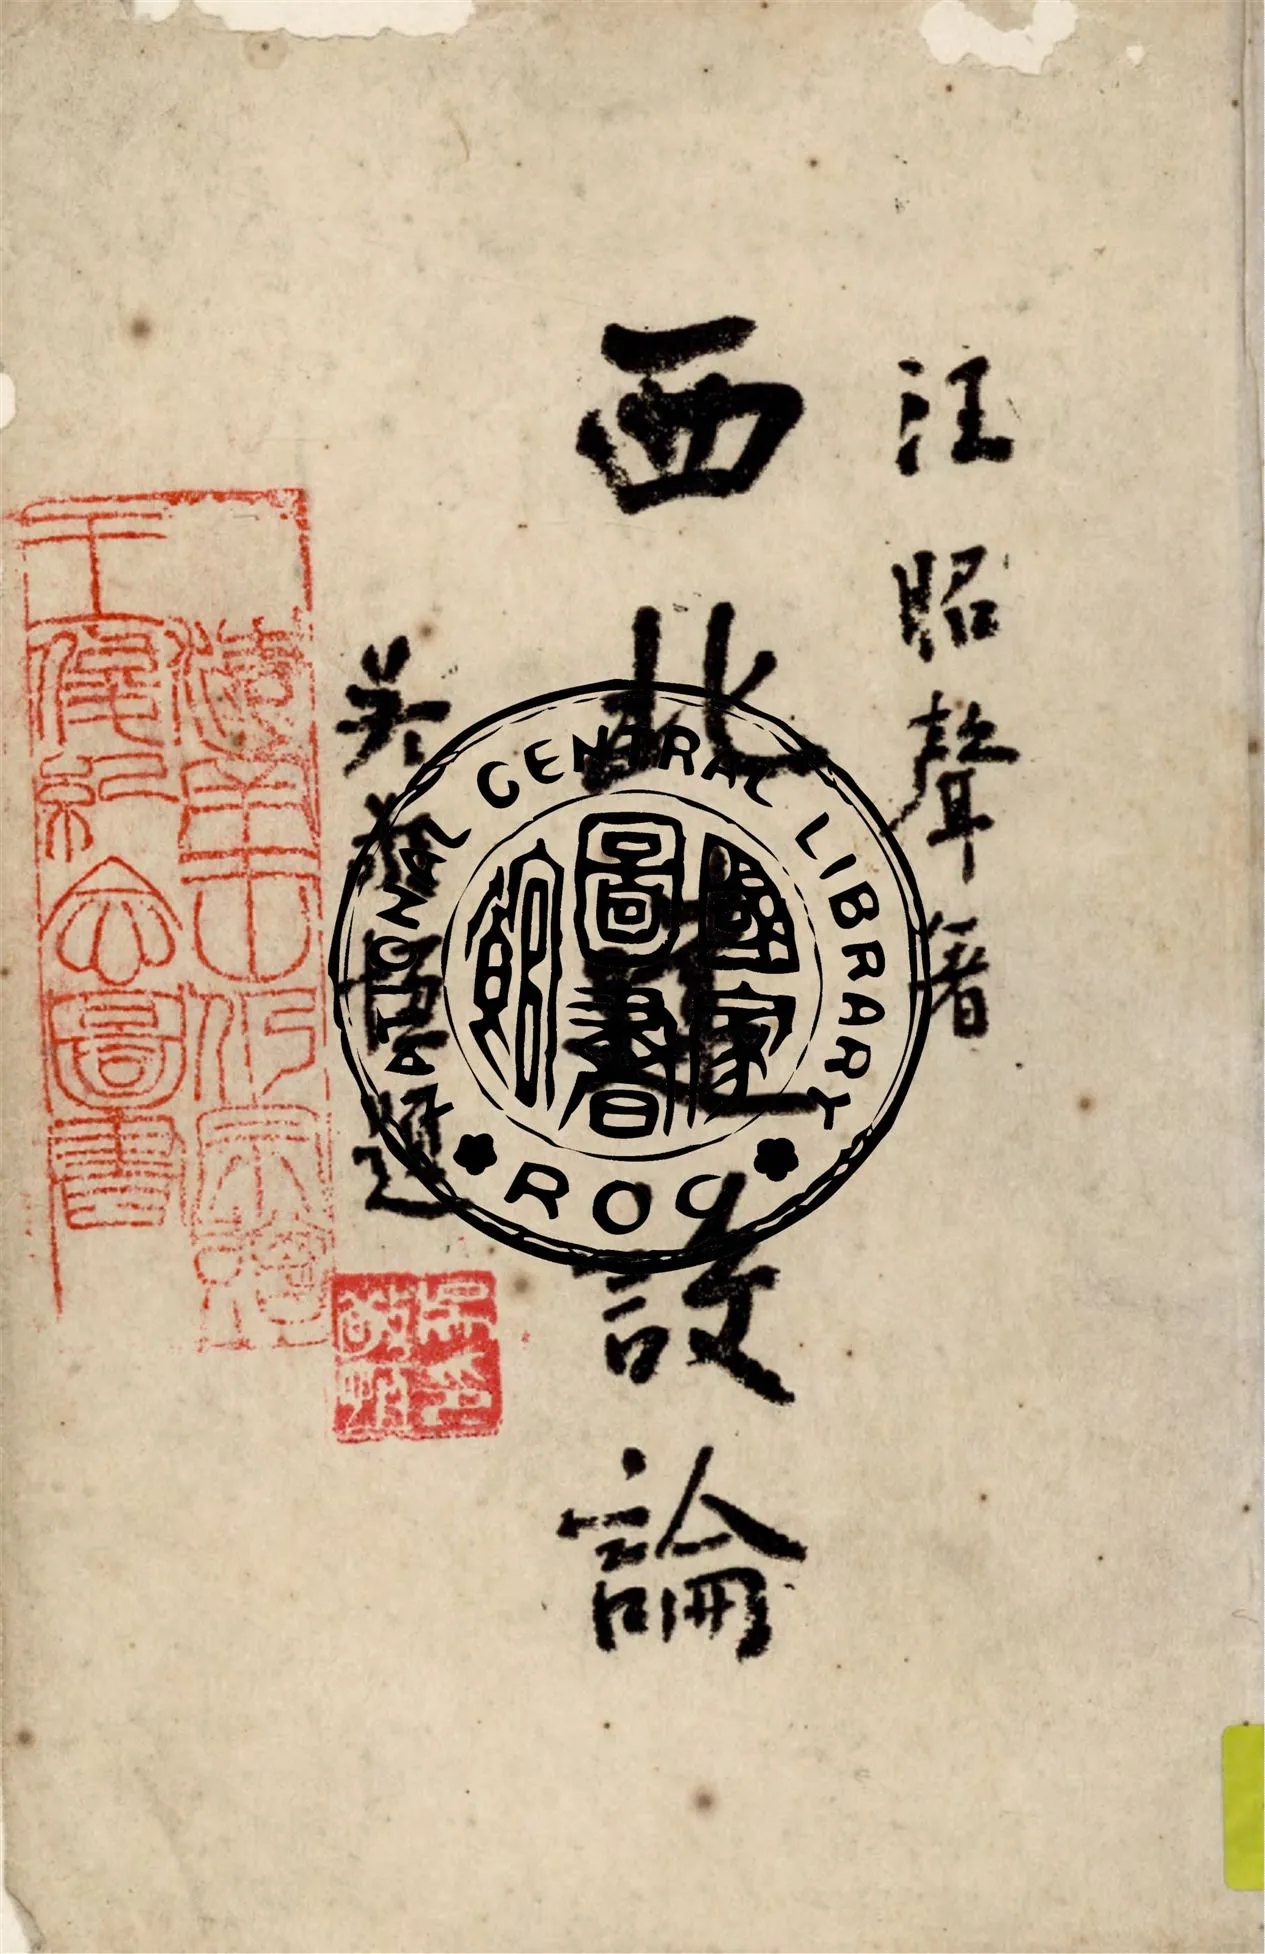 汪昭聲著
西北建設論
吳敬恆題
NATIONAL CENTRAL LIBRARY
國家
圖書
館
ROC
圖書